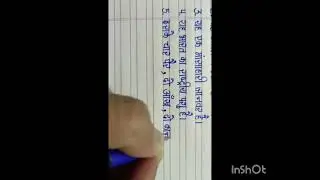 3. यह एक मांसाहारी जानवर है।
4. यह भारत का राष्ट्रीय पशु है।
5. इसके चार पैर, दो आँख, दो कान
InShOt